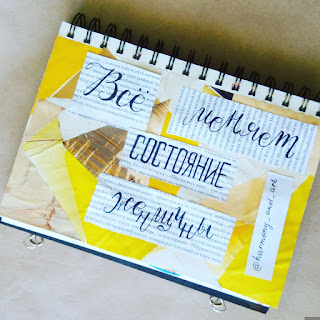 Всё
меняет
СОСТОЯНИЕ
женщины
@harmony_and_art